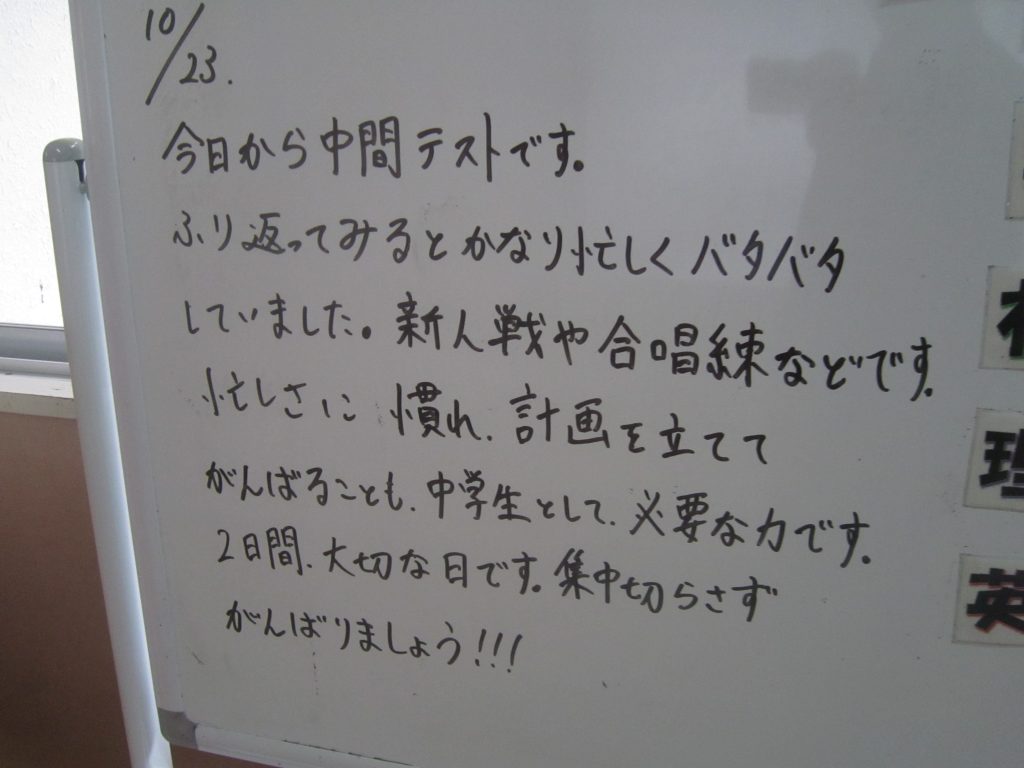 10/23.
今日から中間テストです。
ふり返ってみるとかなり忙しくバタバタ
していました。新人戦や合唱練などです。
忙しさに慣れ、計画を立てて
がんばることも、中学生として、必要な力です。
2日間、大切な日です。集中切らさず
がんばりましょう!!!
理
英